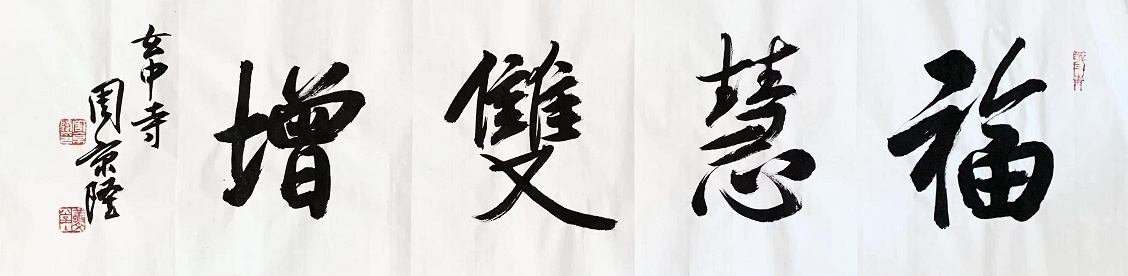 福慧雙增
玄中寺
周京隆